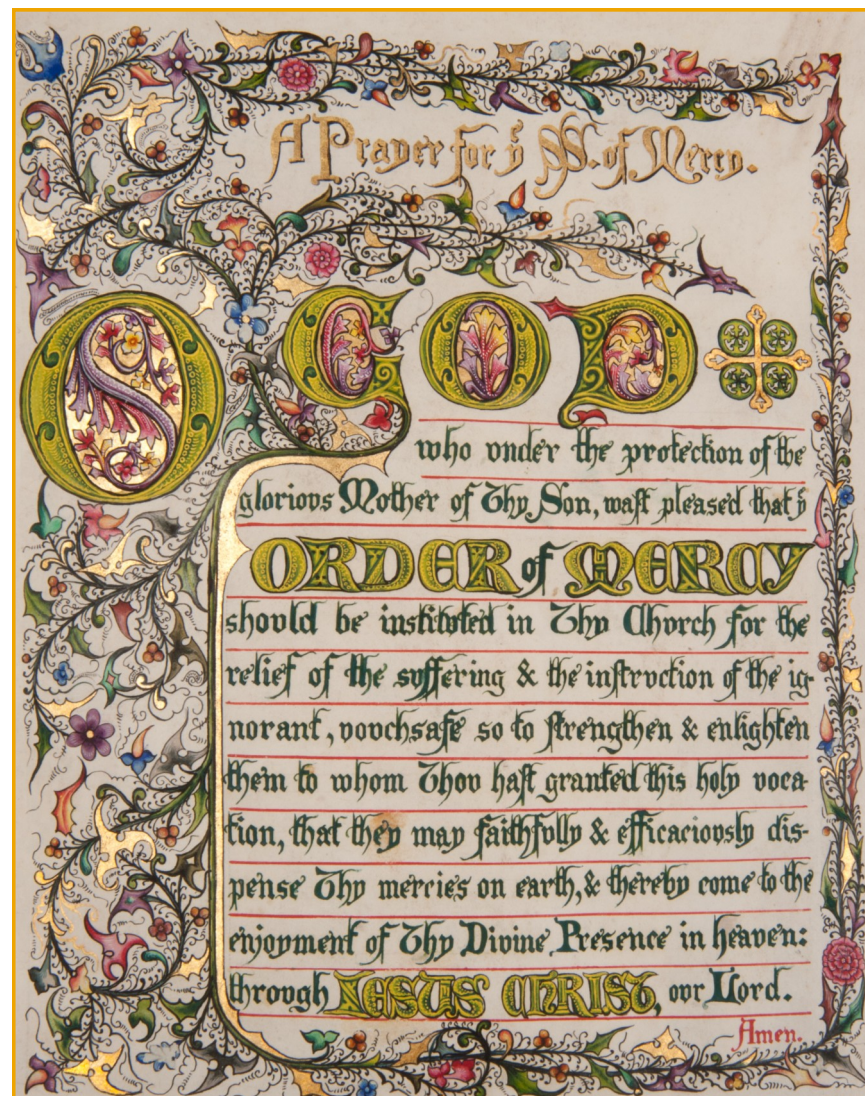 A Prayer for yͤ SS. of Mercy.
O GOD
who vnder the protection of the
gloriovs Mother of Thy Son, waſt pleased that yͤ
ORDER of MERCY
shovld be institvted in Thy Chvrch for the
relief of the svffering & the inſtrvction of the ig-
norant, vovchsafe so to ſtrengthen & enlighten
them to whom Thov haſt granted this holy voca-
tion, that they may faithfvlly & efficaciovsly dis-
pense Thy mercies on earth, & thereby come to the
enjoyment of Thy Divine Presence in heaven:
throvgh JESUS CHRIST, ovr Lord.
Amen.